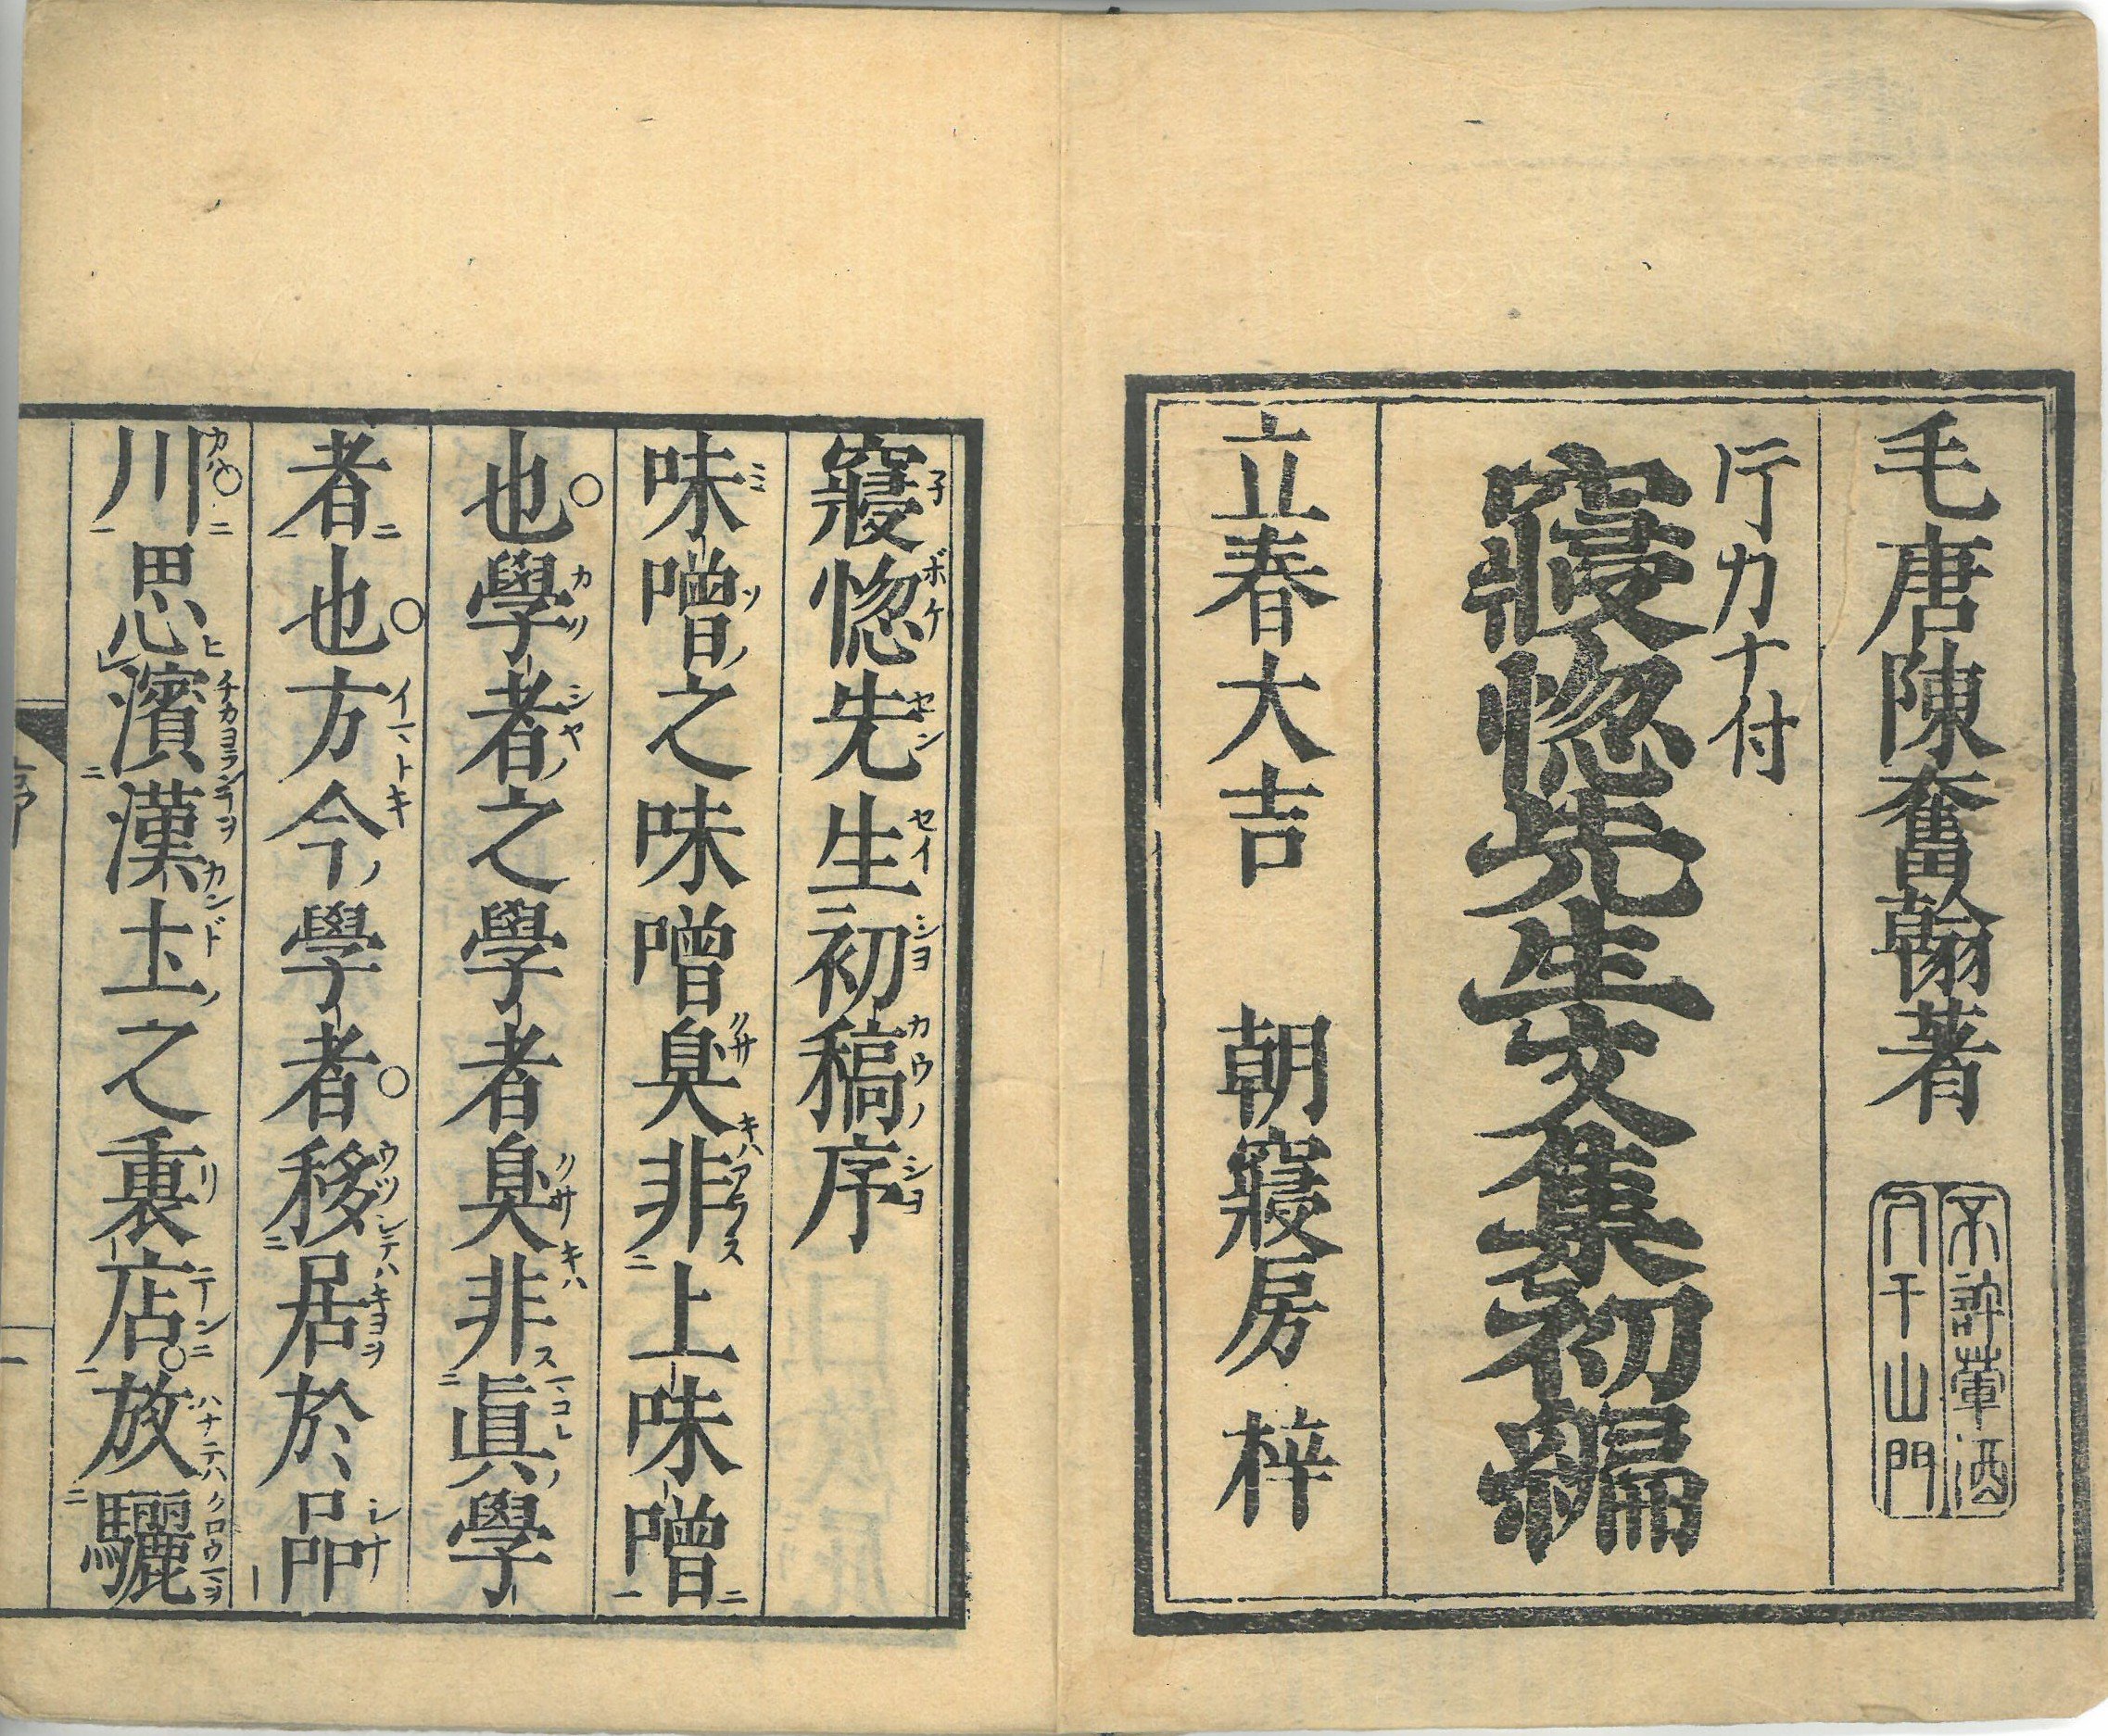 毛唐陳奮翰著
不許葷酒
入于山門
片カナ付
寢惚先生文集初編
立春大吉　朝寢房　梓
寢惚先生初稿序
味噌之味噌臭非上味噌
也學者之學者臭非眞學
者也方今學者移居於品
川思濱漢土之裏店放驪
序
一